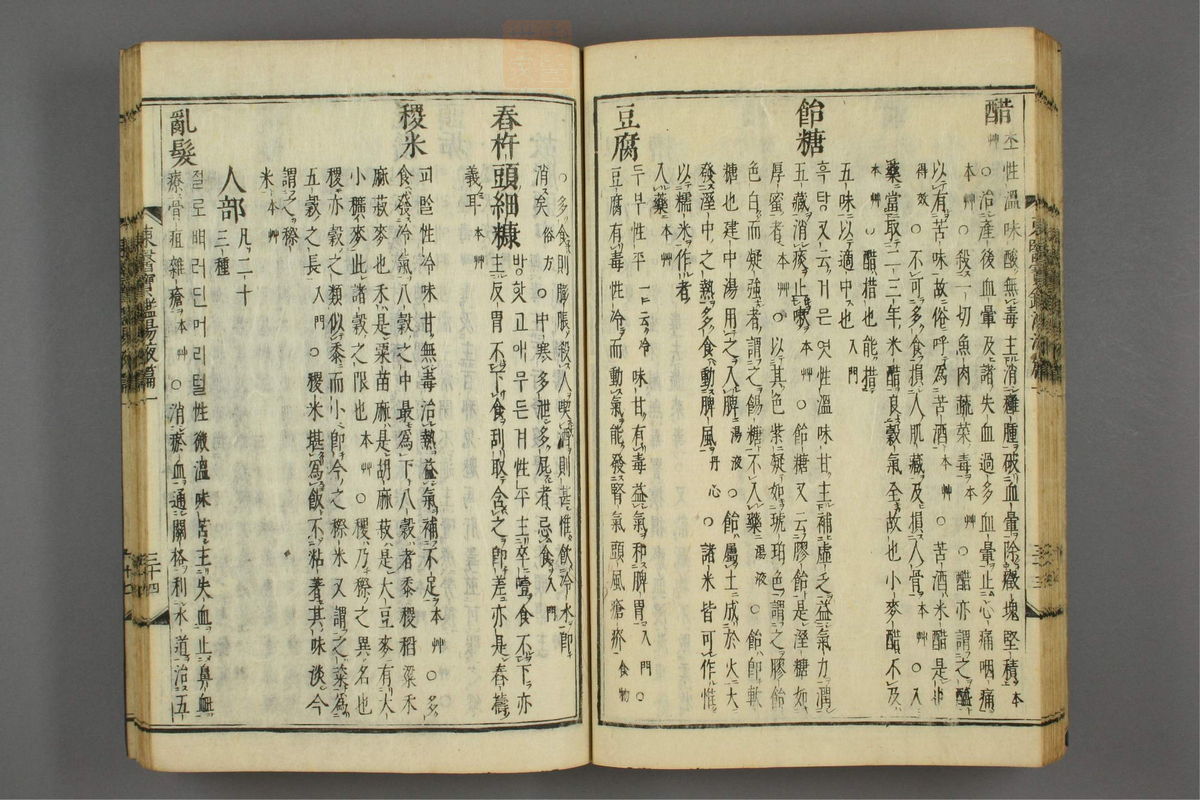 醋 초 性溫味酸無毒主消癰腫破血暈除癥塊堅積 本
草 ○治產後血暈及諸失血過多血暈止心痛咽痛
本草 ○殺一切魚肉蔬菜毒 本草 ○醋亦謂之醯
以有苦味故俗呼為苦酒 本草 ○苦酒米醋是也
得效 ○不可多食損人肌藏及損人骨 本草 ○入
藥當取二三年米醋良穀氣全故也小麥醋不及
本草 ○醋措也能措
五味以適中也 入門
飴糖 흑탕 又云거믄엿 性溫味甘主補虛乏益氣力潤
五藏消痰止嗽 本草 ○飴糖又云膠飴是溼糖如
厚蜜者 本草 ○以其色紫凝如琥珀色謂之膠飴
色白而凝強者謂之餳糖不入藥 湯液 ○飴卽軟
糖也建中湯用之入脾 湯液 ○飴屬土成於火大
發溼中之熱多食動脾風 丹心 ○諸米皆可作惟
以糯米作者
入藥 本草
豆腐 두부 性平 一云冷 味甘有毒益氣和脾胃 入門 ○
豆腐有毒性冷而動氣能發腎氣頭風瘡疥 食物
○多食則膨脹殺人喫酒則甚惟飲冷水卽
消矣 俗方 ○中寒多泄多屁者忌食 入門
舂杵頭細糠 방핫고애무든거 性平主卒噎食不下亦
主反胃不下食刮取含之卽差亦是舂擣
義耳 本草
稷米 피ᄡᆞᆯ 性冷味甘無毒治熱益氣補不足 本草 ○多
食發冷氣八穀之中最為下八穀者黍稷稻粱禾
麻菽麥也禾是粟苗麻是胡麻菽是大豆麥有大
小穬麥此諸穀之限也 本草 ○稷乃穄之異名也
稷亦穀之類似黍而小卽今之穄米又謂之粢為
五穀之長 入門 ○稷米堪為飯不粘著其味淡今
謂之穄
米 本草
人部 凡二十
三種
亂髮 절로ᄠᅥ러딘머리털 性微溫味苦主失血止鼻衄
療骨疽雜瘡 本草 ○消瘀血通關格利水道治五
東醫寶鑑湯液篇一
三十四